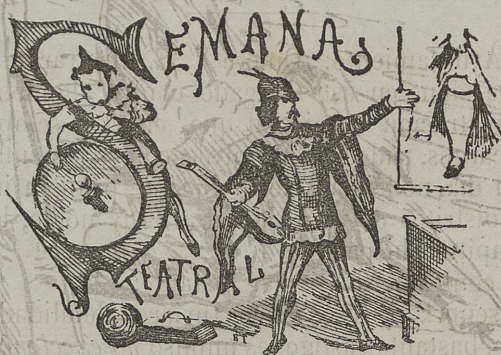 SEMANA
TEATRAL